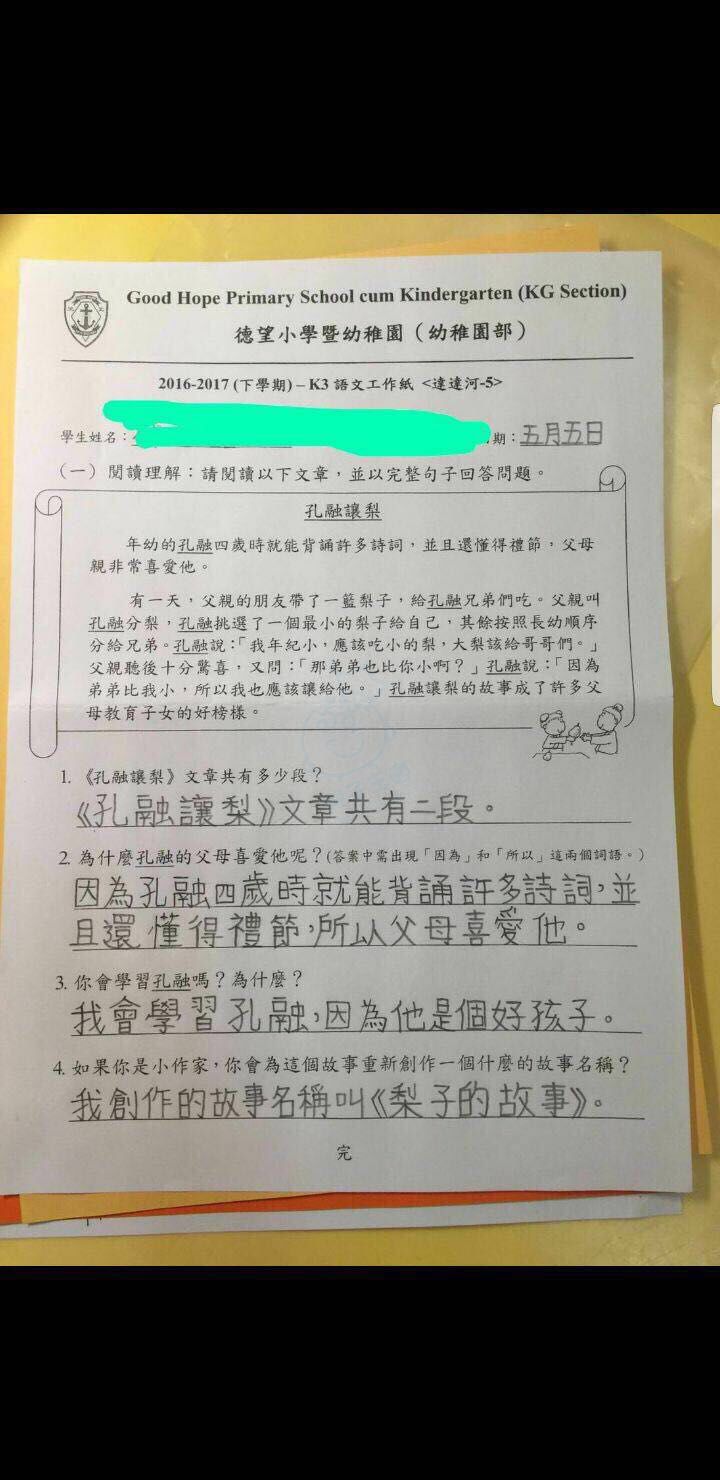 Good Hope Primary School cum Kindergarten (KG Section)
德望小學暨幼稚園(幼稚園部)
2016-2017 (下學期) – K3 語文工作紙 <達達河-5>
學生姓名:
期:五月五日
(一) 閱讀理解:請閱讀以下文章,並以完整句子回答問題。
孔融讓梨
年幼的孔融四歲時就能背誦許多詩詞,並且還懂得禮節,父母
親非常喜愛他。
有一天,父親的朋友帶了一籃梨子,給孔融兄弟們吃。父親叫
孔融分梨,孔融挑選了一個最小的梨子給自己,其餘按照長幼順序
分給兄弟。孔融說:「我年紀小,應該吃小的梨,大梨該給哥哥們。」
父親聽後十分驚喜,又問:「那弟弟也比你小啊?」孔融說:「因為
弟弟比我小,所以我也應該讓給他。」孔融讓梨的故事成了許多父
母教育子女的好榜樣。
1. 《孔融讓梨》文章共有多少段?
《孔融讓梨》文章共有二段。
2. 為什麼孔融的父母喜愛他呢?(答案中需出現「因為」和「所以」這兩個詞語。)
因為孔融四歲時就能背誦許多詩詞,並
且還懂得禮節,所以父母喜愛他。
3. 你會學習孔融嗎?為什麼?
我會學習孔融,因為他是個好孩子。
4. 如果你是小作家,你會為這個故事重新創作一個什麼的故事名稱?
我創作的故事名稱叫《梨子的故事》。
完